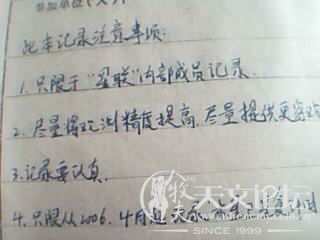 参加单位(人):
此本记录注意事项:
1.只限于“星联”内部成员记录.
2.尽量将观测精度提高.尽量提供更
3.记录要认真.
4.只限从2006.4月
牧夫天文论坛
www.astronomy.com.cn